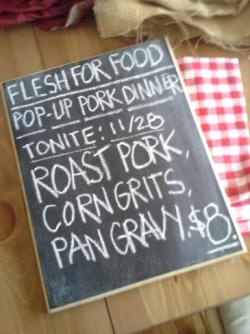 FLESH FOR FOOD
POP-UP PORK DINNER
TONITE: 11/28
ROAST PORK,
CORN GRITS,
PAN GRAVY. $8.